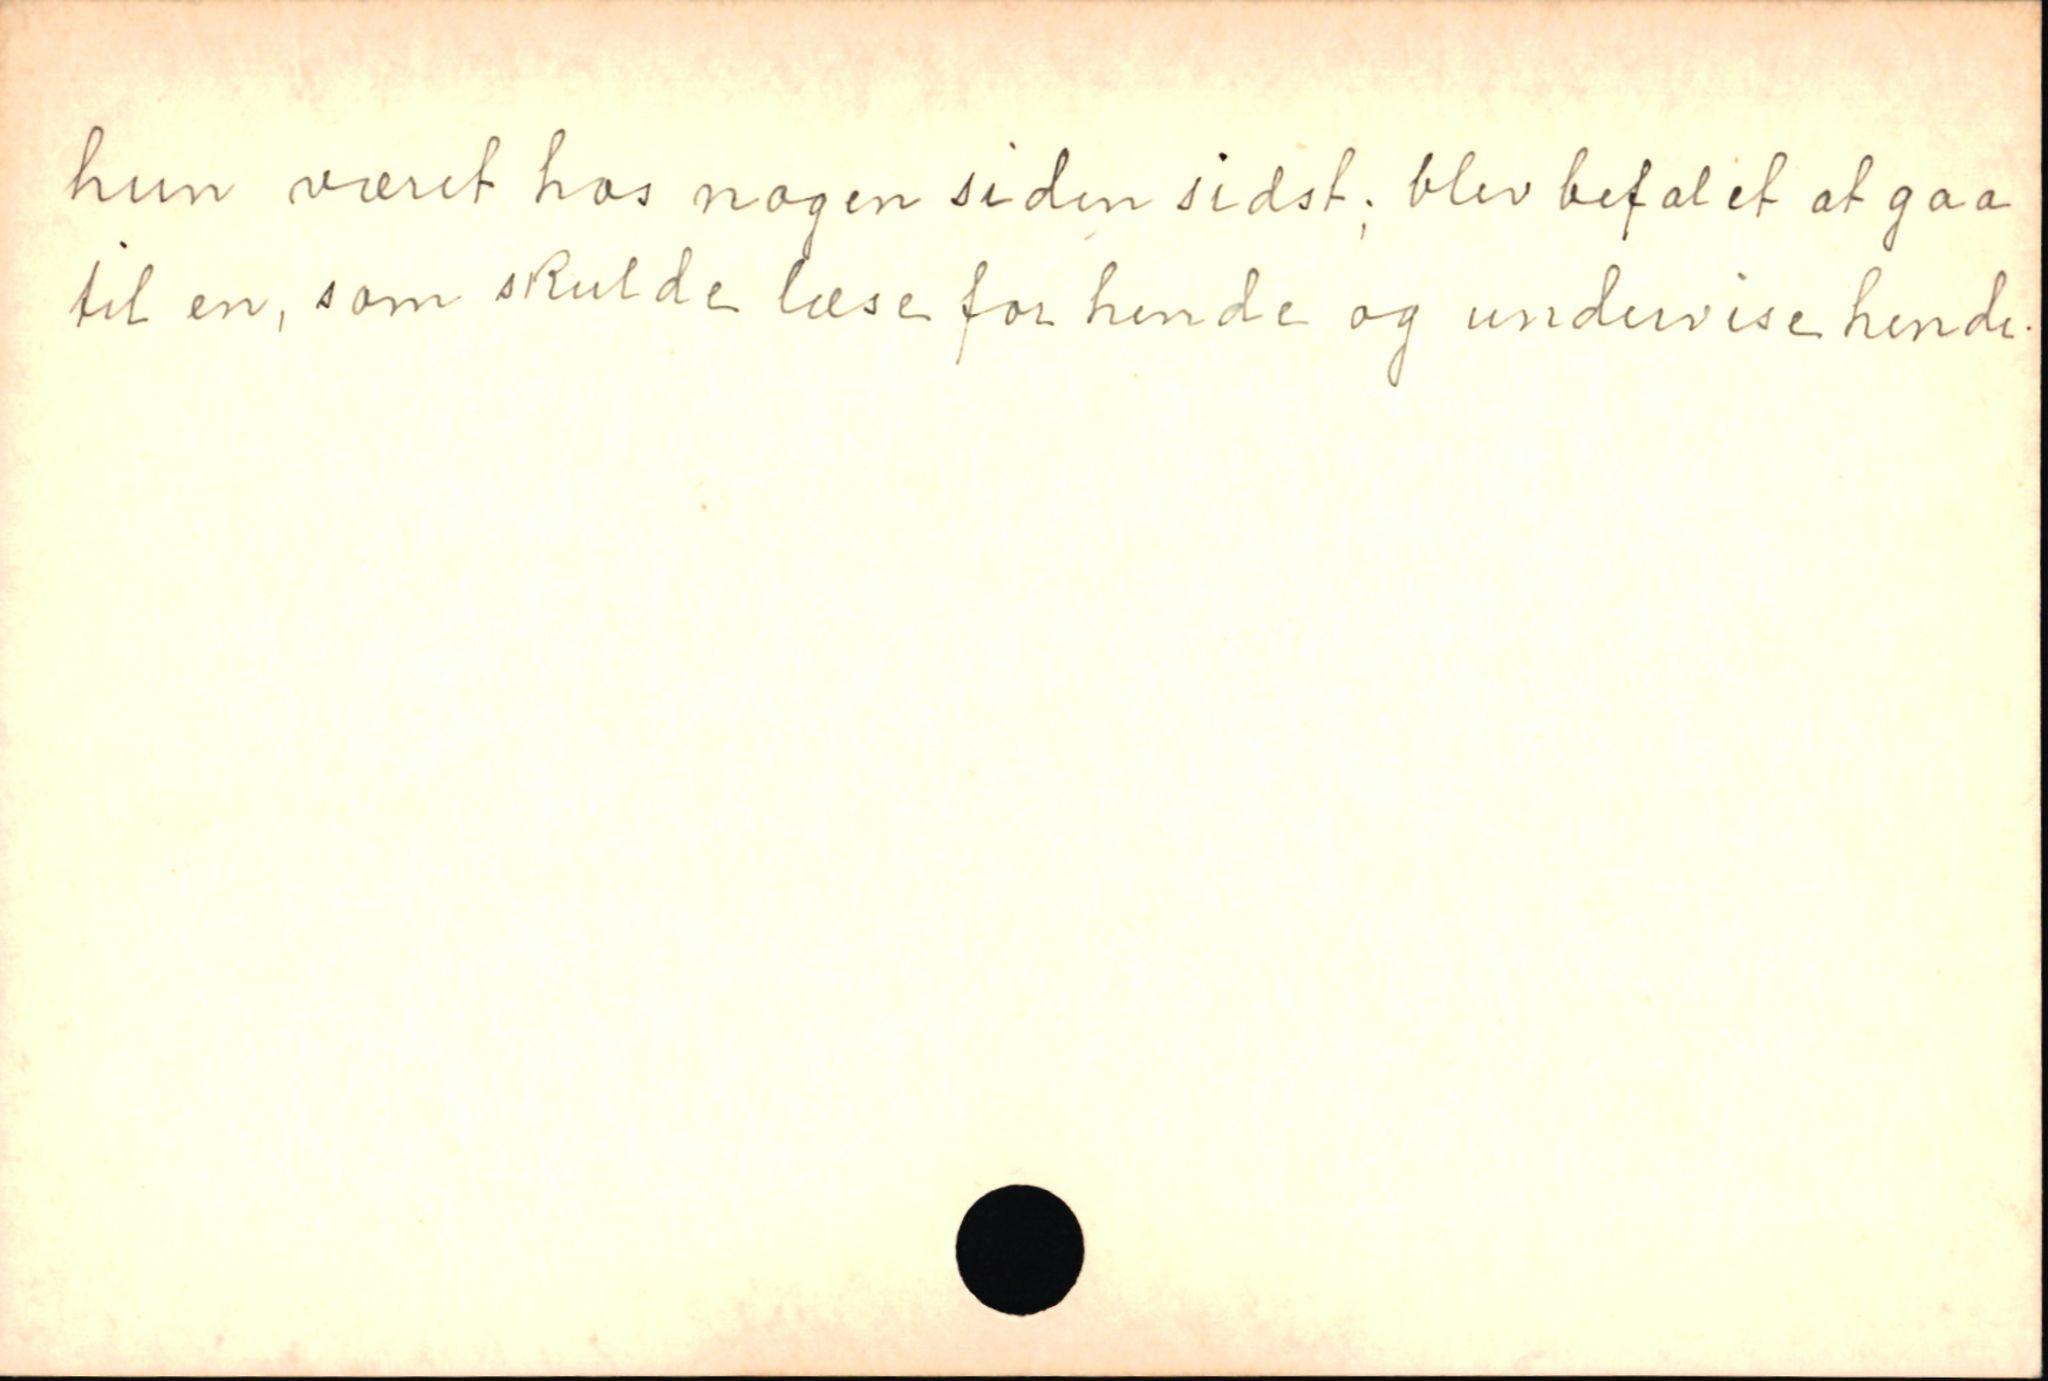 hun været hos nogen siden sidst; blev befalet at gaa
til en, som skulde læse for hende og undervise hende.